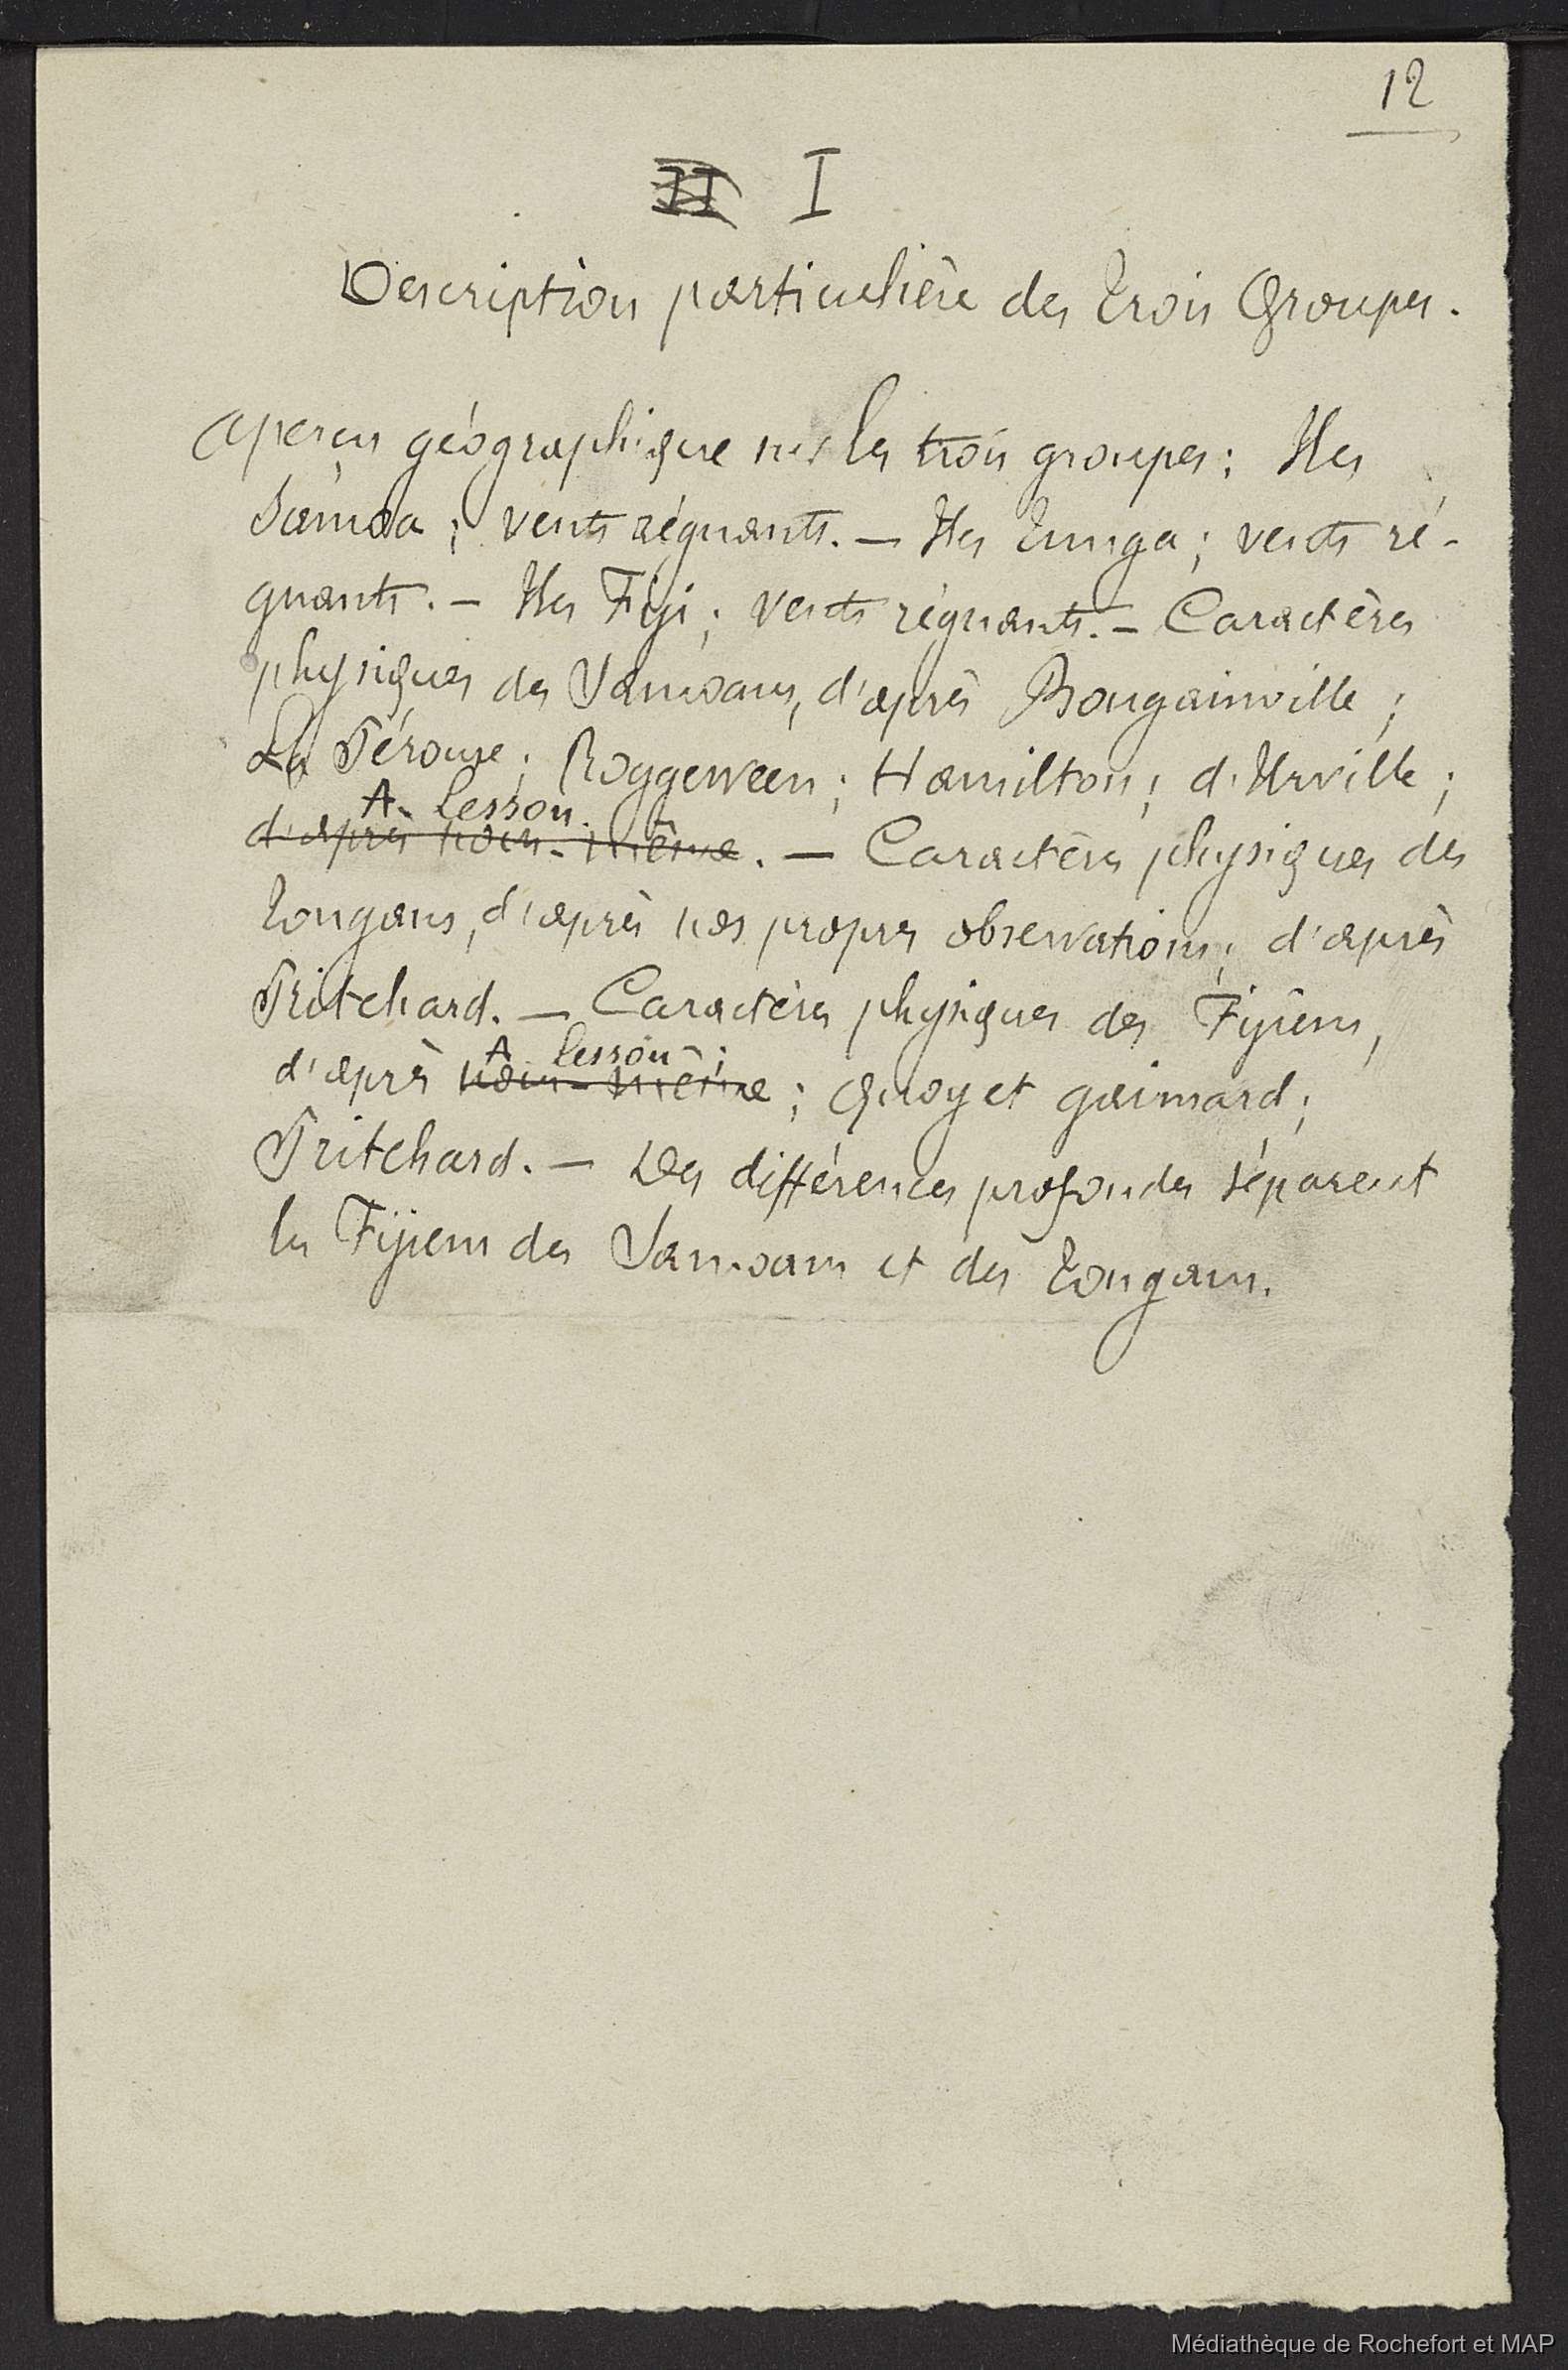 12
II I
Description particulière des Trois Groupes.
Aperçu géographique sur les trois groupes: Iles
Samoa; vents régnants. — Iles Tunga; vents ré-
gnants. — Iles Fiji; vents régnants. — Caractères
physiques des Samoans, d'après Bougainville;
La Pérouse; Roggeween; Hamilton; d'Urville;
A. Lesson.
d'après nous-même. — Caractères physiques des
Tongans, d'après nos propres observations; d'après
Pritchard. — Caractères physiques des Fijiens,
A Lesson;
d'après nous-même; Quoy et Gaimard;
Pritchard. — Des différences profondes séparent
les Fijiens des Samoans et des Tongans.
Médiathèque de Rochefort et MAP